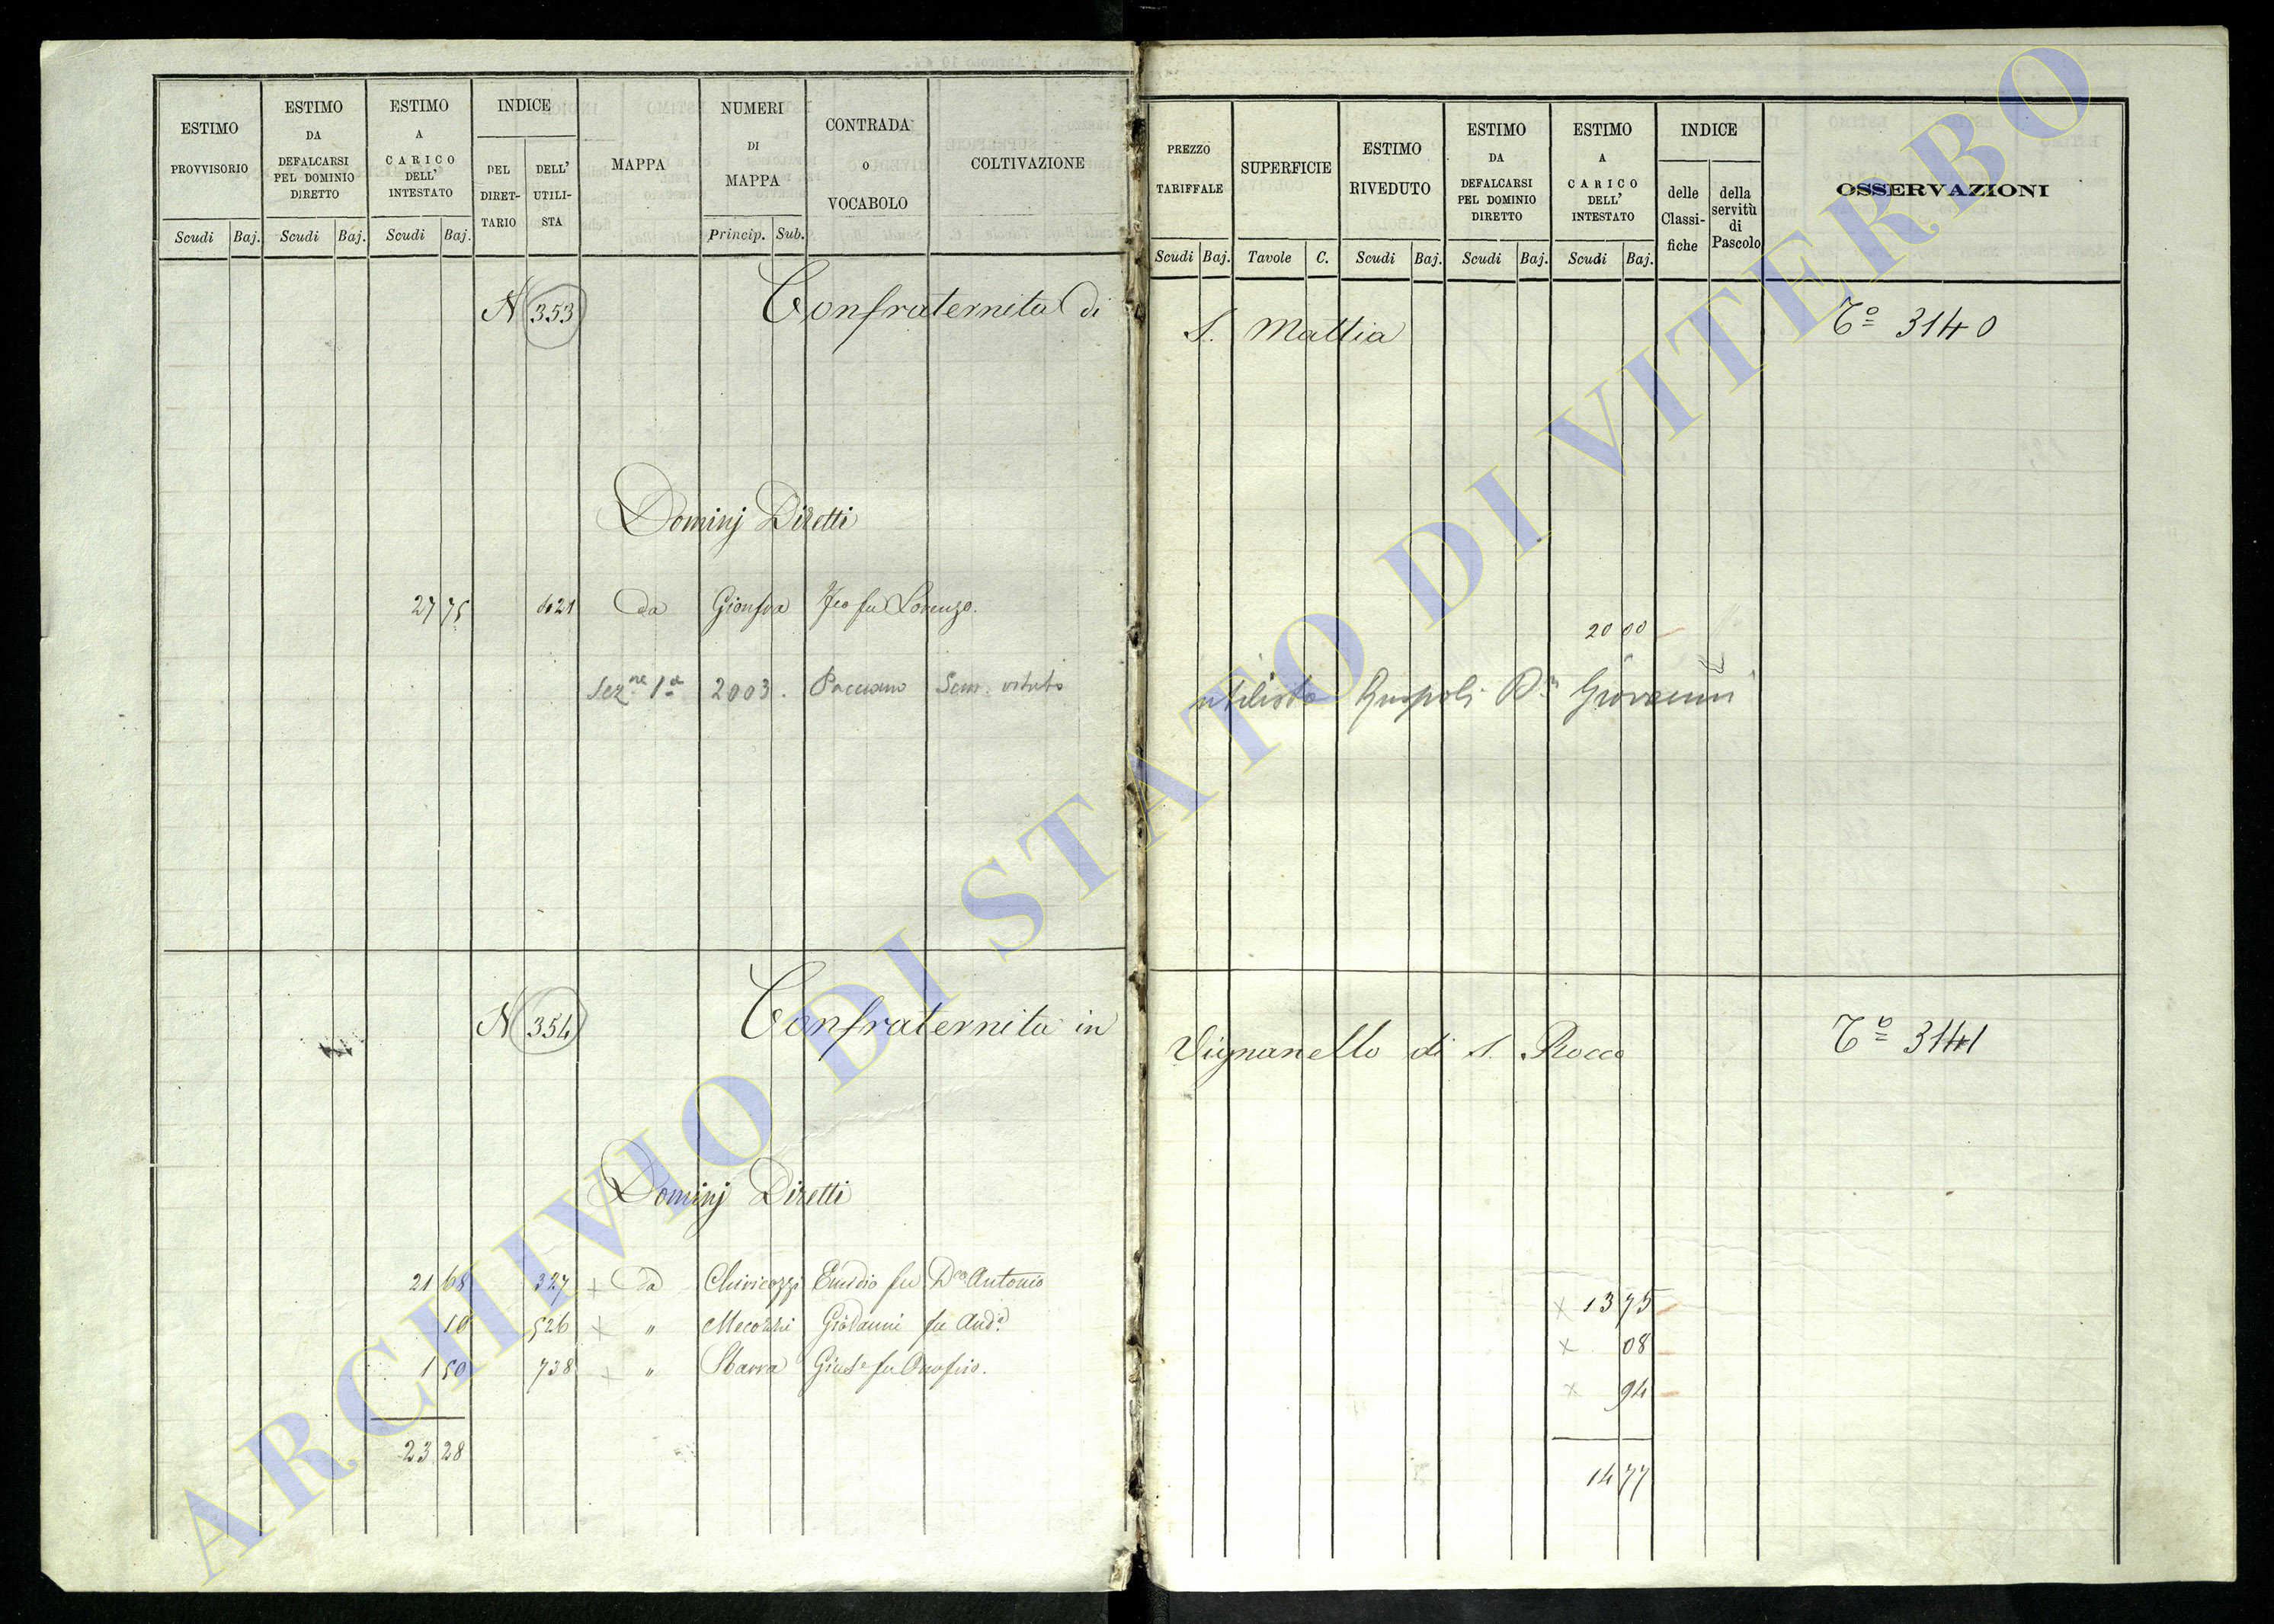 ESTIMO PROVVISORIO
Scudi Baj.
ESTIMO DA DEFALCARSI PEL DOMINIO DIRETTO
Scudi Baj.
ESTIMO A CARICO DELL' INTESTATO
Scudi Baj.
INDICE
DEL DIRET-TARIO
DELL' UTILI-STA
MAPPA
NUMERI DI MAPPA
Princip. Sub.
CONTRADA o VOCABOLO
COLTIVAZIONE
N 353 Confraternita di
Dominj Diretti
27 75 621 da Gionfra fu Lorenzo.
Sez.ne 1a 2003. Pacciano Sem. vitato
N 354 Confraternita in
Dominj Diretti
21 68 327 + da Chiricozzi Emidio fu Dco Antonio
10 526 + " Mecozzi Giovanni fu And.a
1 50 738 + " Sbarra Giuse fu Onofrio.
23 28
PREZZO TARIFFALE
Scudi Baj.
SUPERFICIE
Tavole C.
ESTIMO RIVEDUTO
Scudi Baj.
ESTIMO DA DEFALCARSI PEL DOMINIO DIRETTO
Scudi Baj.
ESTIMO A CARICO DELL' INTESTATO
Scudi Baj.
INDICE
delle Classi-fiche
della servitù di Pascolo
OSSERVAZIONI
S. Mattia Ta 3140
20 00
utilista Ruspoli Dn Giovanni
Vignanello di S. Rocco Ta 3141
x 13 75
x 08
x 94
14 77
ARCHIVIO DI STATO DI VITERBO